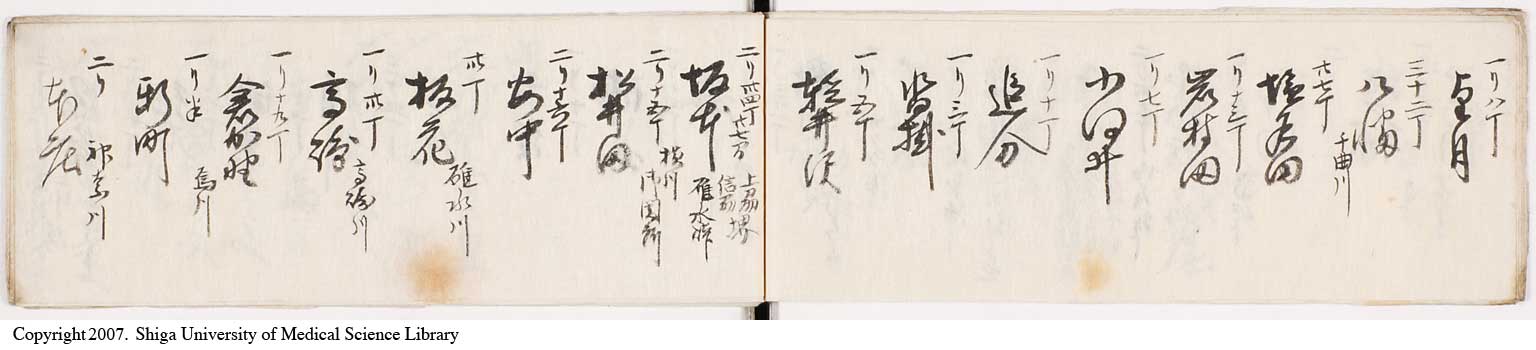 一リ八丁
望月
三十二丁
八幡
廿七丁
千曲川
塩名田
一リ十三丁
岩村田
一リ七丁
小田井
一リ十丁
追分
一リ三丁
沓掛
一リ五丁
軽井沢
上刕
信刕
堺
二リ卅四丁
坂本
碓水峠
二リ十五丁
横川
御関所
松井田
安中
卅丁
板花
碓水川
一リ卅丁
高崎
高崎川
一リ十九丁
倉加野
一リ半
烏川
新町
二リ
神奈川
本庄
Copyright 2007. Shiga University of Medical Science Library